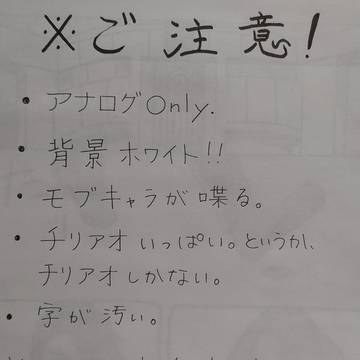 ※ご注意!
・アナログOnly.
・背景ホワイト!!
・モブキャラが喋る。
・チリアオいっぱい。というか、
チリアオしかない。
・字が汚い。